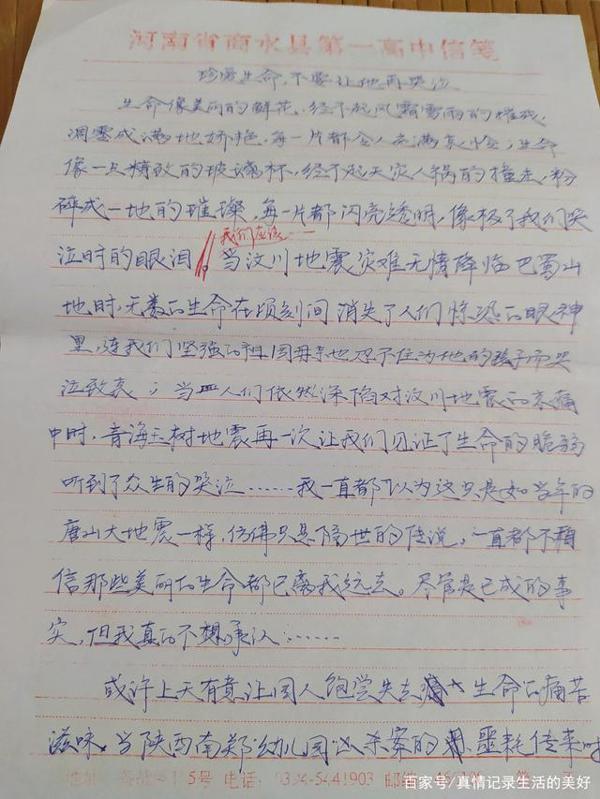 河南省商水县第一高中信笺
珍爱生命,不要让她再哭泣
生命像美丽的鲜花,经不起风霜雪雨的摧残,
凋零成满地娇艳,每一片都令人
生命
像一只精致的玻璃杯,经不起天灾人祸的撞击,粉
碎成一地的璀璨,每一片都闪亮透明,像极了我们哭
我们应该……
泣时的眼泪。当汶川地震灾难无情降临巴蜀山
地时,无数的生命在顷刻间消失了人们惊恐的眼神
里,连我们坚强的祖国母亲也忍不住为她的孩子而哭
泣致哀;当人们依然深陷对汶川地震的哀痛
中时,青海玉树地震再一次让我们见证了生命的脆弱
听到了众生的哭泣……我一直都以为这只是如当年的
唐山大地震一样,仿佛只是隔世的传说,一直都不相
信那些美丽的生命都已离我远去。尽管是已成的事
实,但我真的不想承认……
或许上天有意让国人饱尝失去生命的痛苦
滋味,当陕西南郑幼儿园凶杀案的噩耗传来时
5号 电话:0394-5441903 邮编
百家号/真情记录生活的美好